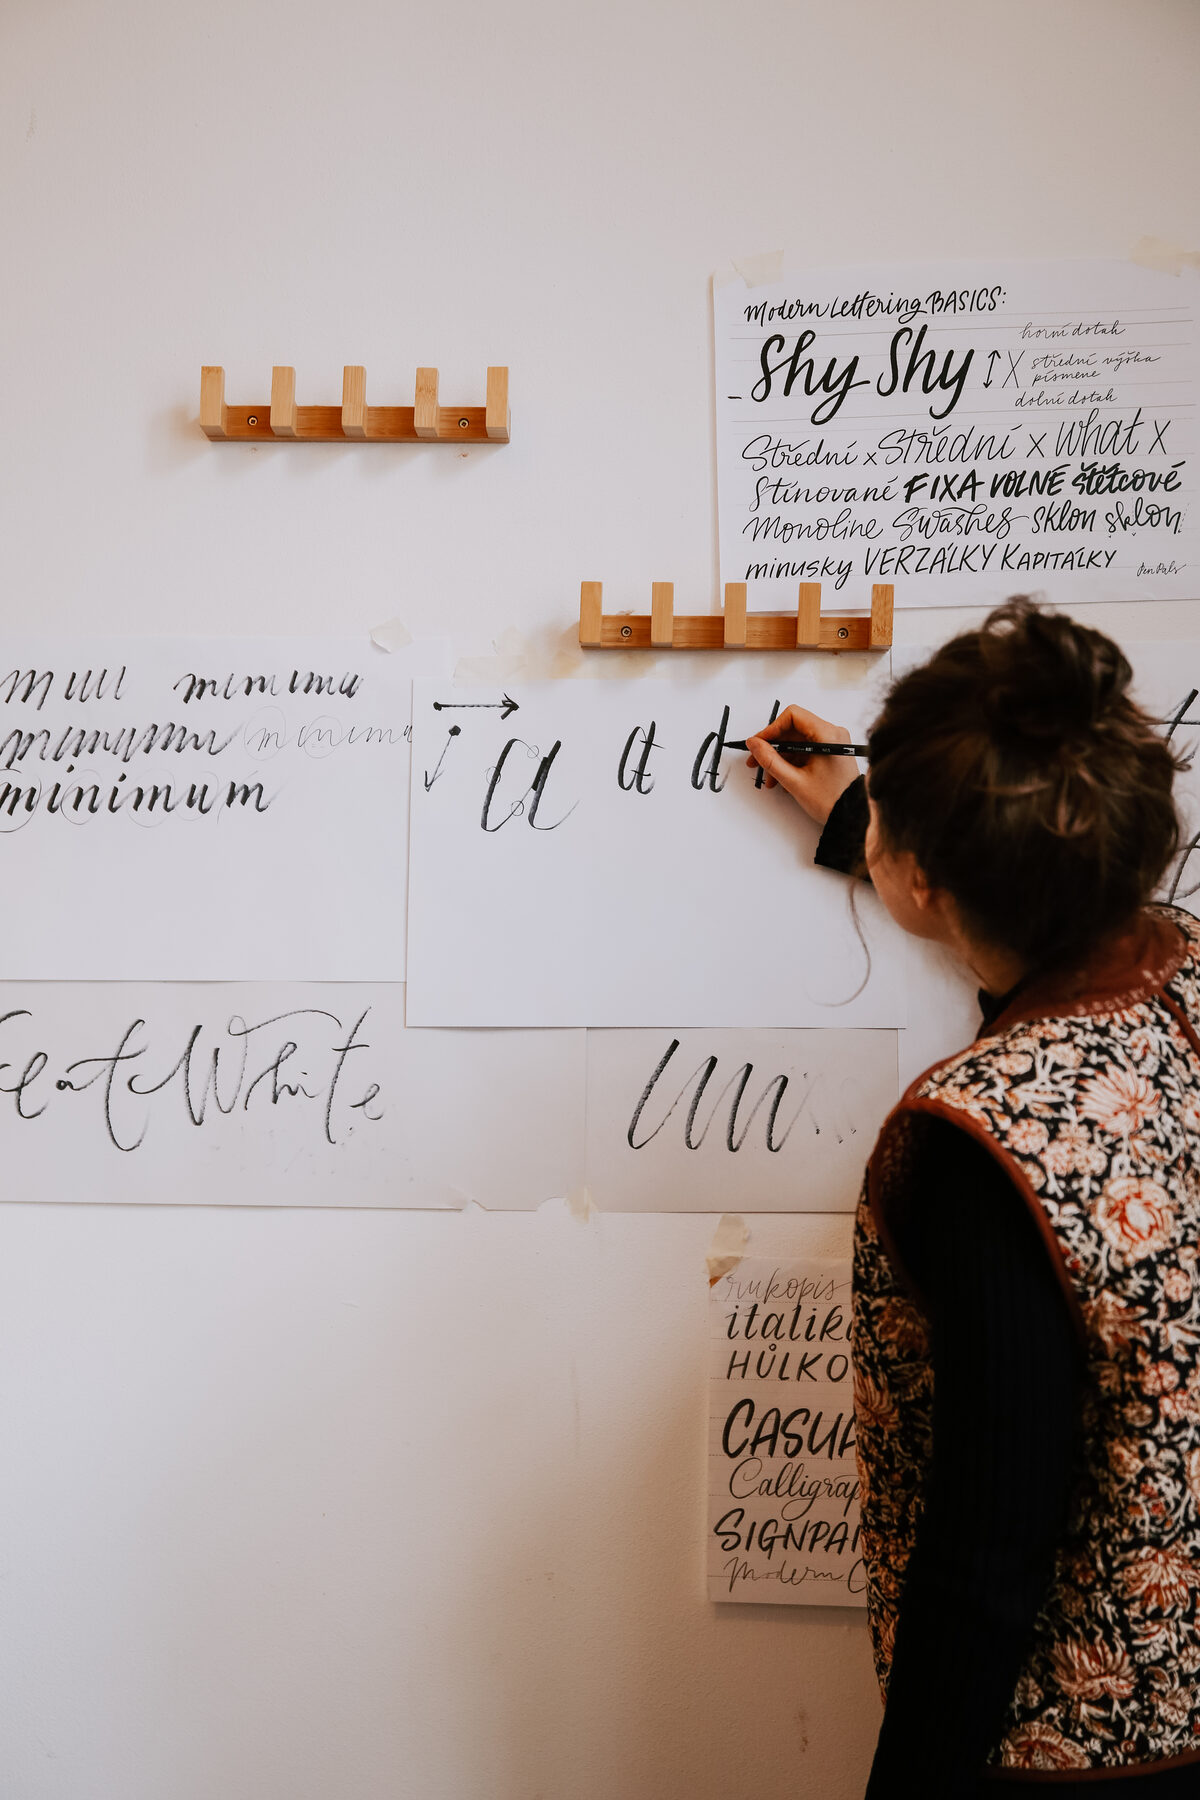 Modern Lettering BASICS:
Shy Shy
horní dotah
X střední výška
písmene
dolní dotah
Střední x Střední x what x
Stínované FIXA VOLNÉ štětcové
Monoline Swashes sklon sklon
minusky VERZÁLKY KAPITÁLKY
Pen Pals
minimum
a a d
White
rukopis
italik
HŮLKO
CASUA
Calligrap
SIGNPAI
Modern C